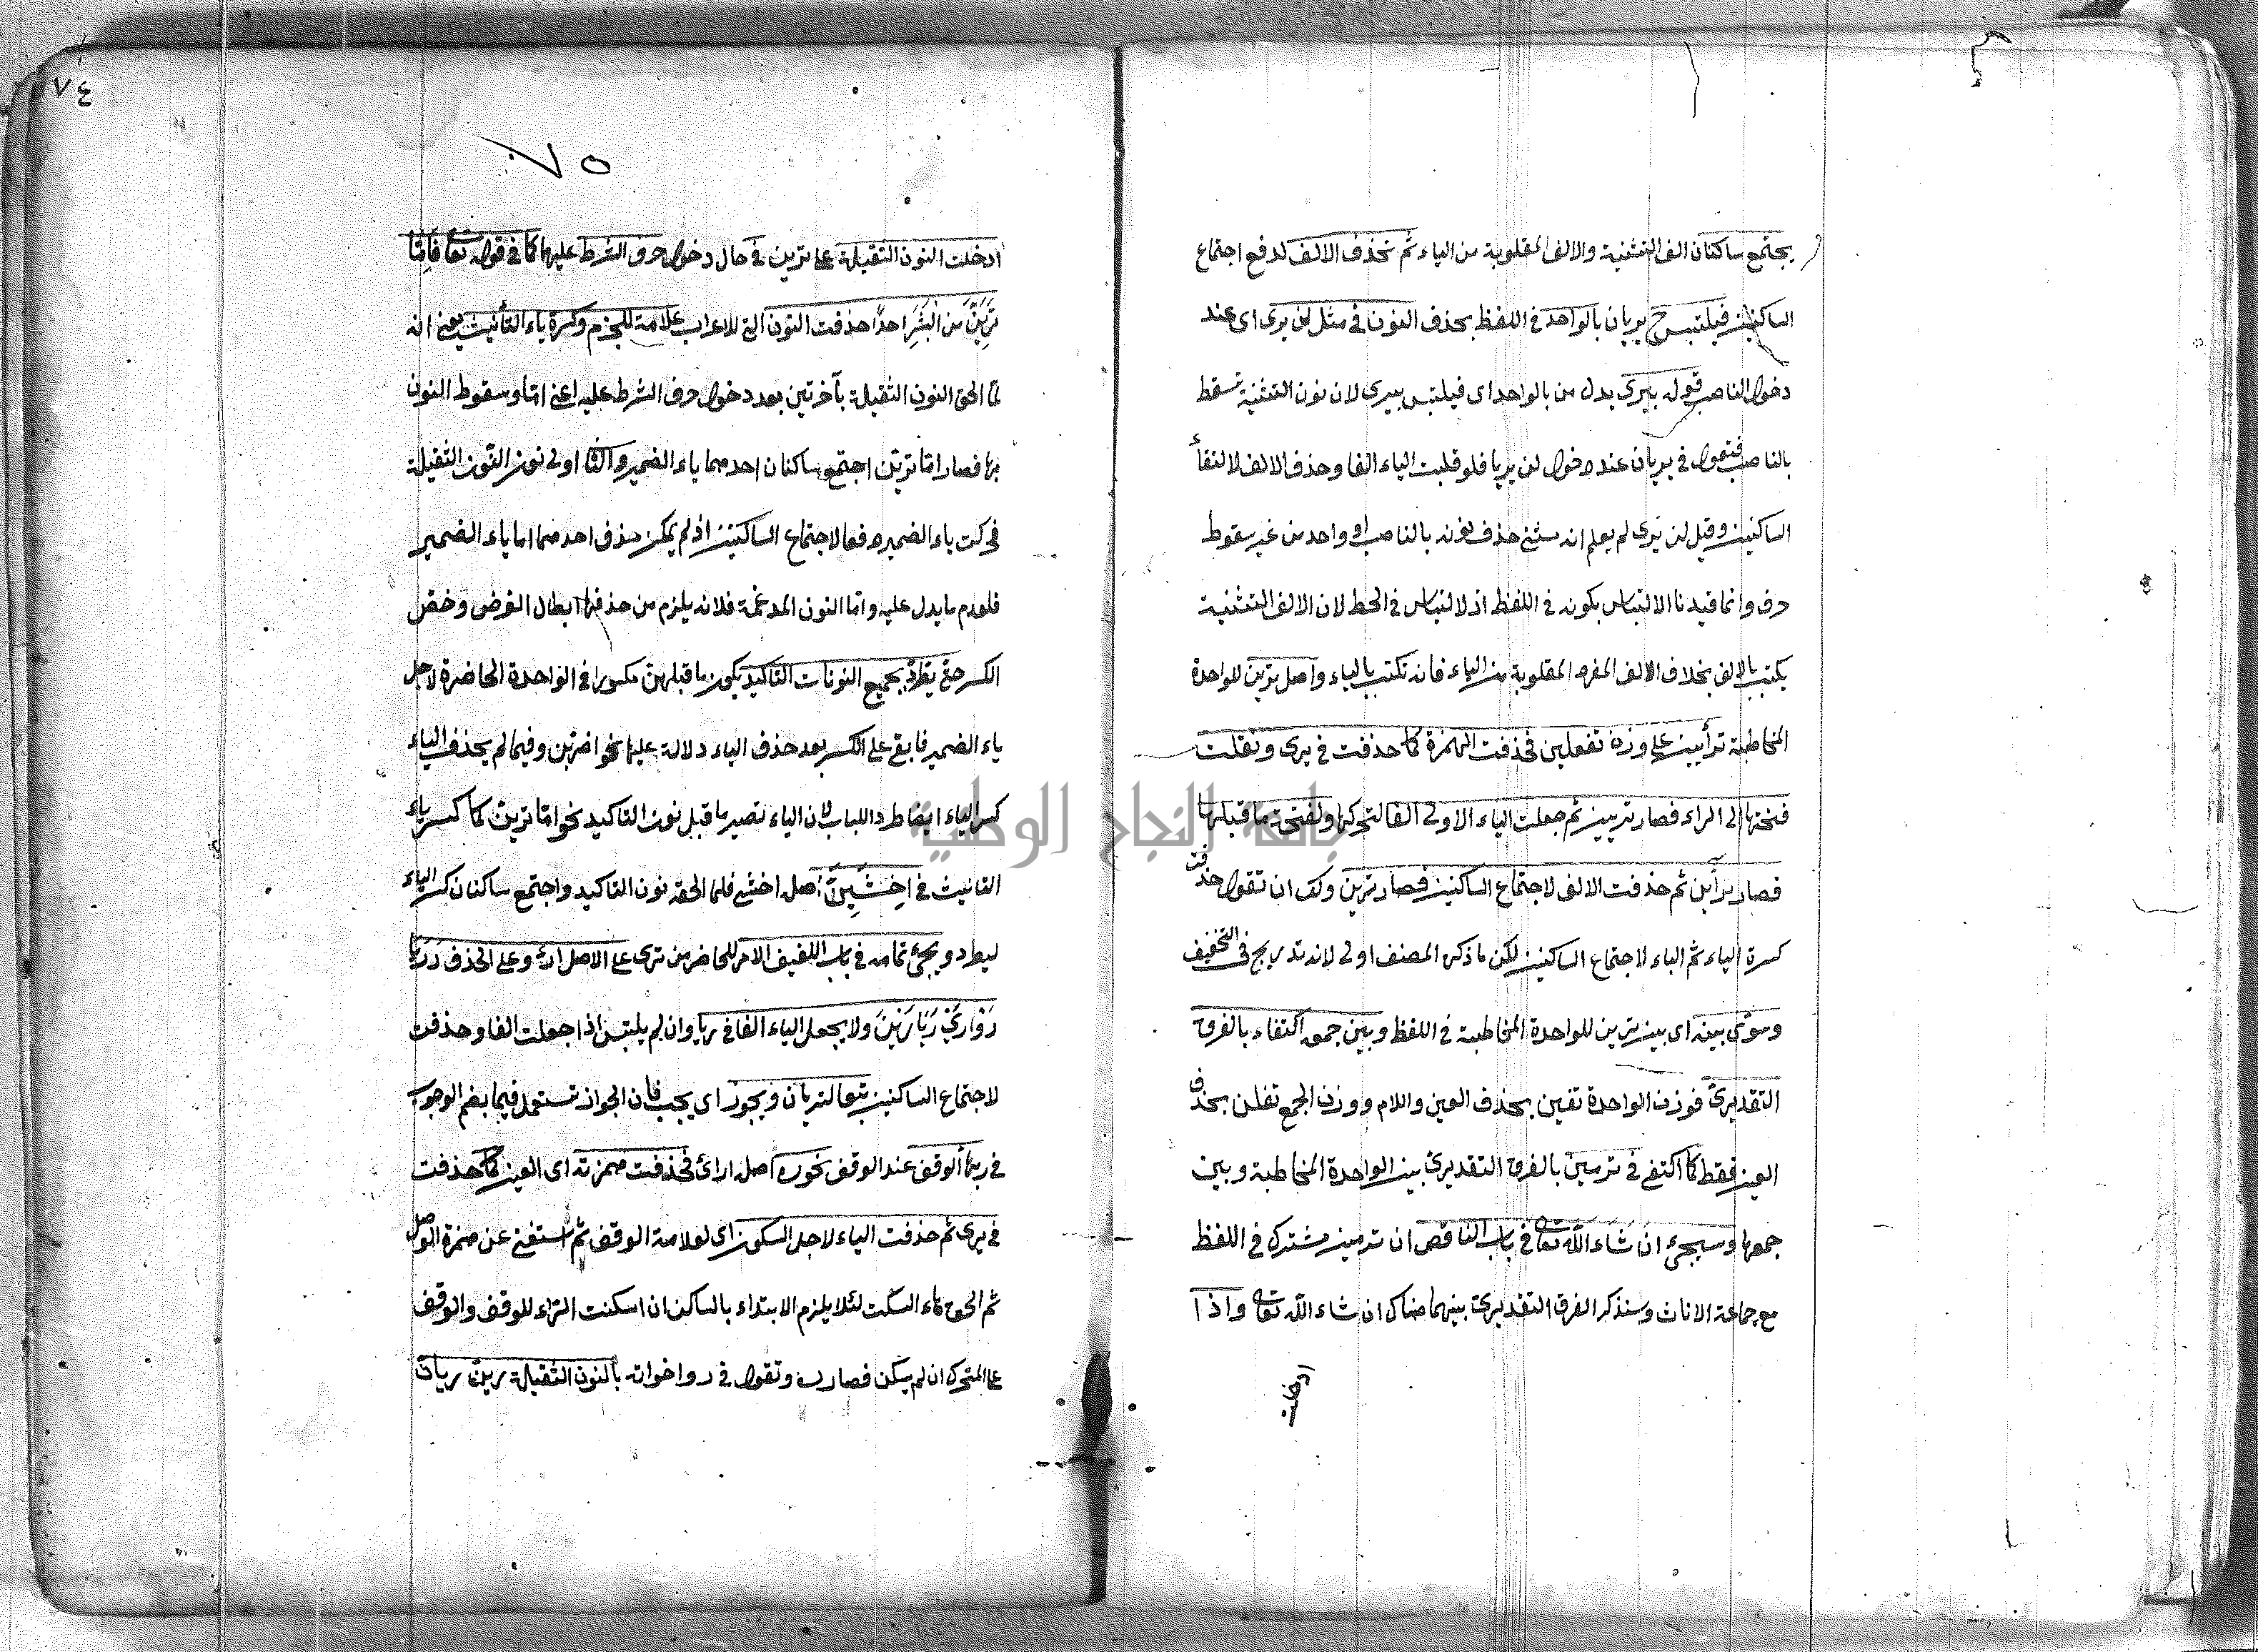 يجتمع ساكنان الف التثنية والالف المقلوبة من الياء ثم تحذف الالف لدفع اجتماع
الساكنين فيلتبس ح يريان بالواحد في اللفظ بحذف النون في مثل لن يرى اى عند
دخول الناصب قوله بيرى بدل من بالواحد اى فيلتبس بيرى لان نون التثنية تسقط
بالناصب فتقول في يريان عند دخول لن يريا فلو قلبت الياء الفا وحذف الالف لالتقأ
الساكنين وقيل لن يرى لم يعلم انه مثنى حذف نونه بالناصب او واحد من غير سقوط
حرف وانما قيدنا الالتباس بكونه في اللفظ اذ لا لتباس في الخط لان الالف التثنية
يكتب بالالف بخلاف الالف المفرد المقلوبة من الياء فانه تكتب بالياء واصل ترين للواحدة
المخاطبة ترأيين على وزن تفعلين فحذفت الهمزة كما حذفت في يرى ونقلت
فتحتها الى الراء فصار تريين ثم جعلت الياء الاولى الفا لتحركها ولفتحة ما قبلها
فصار تراين ثم حذفت الالف لاجتماع الساكنين فصار ترين ولك ان تقول حذفت
كسرة الياء ثم الياء لاجتماع الساكنين لكن ما ذكره المصنف اولى لانه تدريج في التخفيف
وسوى بينه اى بين ترين للواحدة المخاطبة في اللفظ وبين جمعه اكتفاء بالفرق
التقديرى فوزن الواحدة تفين بحذف العين واللام ووزن الجمع تفلن بحذف
العين فقط كما اكتفى في ترمين بالفرق التقديرى بين الواحدة المخاطبة وبين
جمعها وسيجىء ان شاء الله تعالى في باب الناقص ان ترمين مشترك في اللفظ
مع جماعة الاناث وسنذكر الفرق التقديرى بينهما هناك ان شاء الله تعالى واذا
ادخلت
٧٤
٧٥
ادخلت النون الثقيلة على ترين في حال دخول حرف الشرط عليها كما في قوله تعا فَاِمَّا
تَرَيِنَّ مِنَ الْبَشَرِ احدًا حذفت النون التى للاعراب علامة للجزم وكسرة ياء التأنيث يعنى انه
لما الحق النون الثقيلة بآخر ترين بعد دخول حرف الشرط عليه اعنى اما وسقوط النون
بها فصار اما ترين اجتمع ساكنان احدهما ياء الضمير والثا اولى نونى النون الثقيلة
فحركت ياء الضمير دفعا لاجتماع الساكنين اذ لم يمكن حذف احدهما اما ياء الضمير
فلعدم ما يدل عليه واما النون المدغمة فلانه يلزم من حذفها ابطال الغرض وخص
الكسر حتى يطرد بجميع النونات التاكيد يكون ما قبلهن مكسورا في الواحدة الحاضرة لاجل
ياء الضمير فابقى على الكسر بعد حذف الياء دلالة عليها نحو اضربن وفيما لم يحذف الياء
كسر الياء ايضا طردا للباب لان الياء تصير ما قبل نون التاكيد نحو اما ترين كما كسر ياء
التانيث في اِخْشَيِنَّ اصله اخشى فلما الحقه نون التاكيد واجتمع ساكنان كسر الياء
ليطرد ويجئ تمامه في باب اللفيف الامر للحاضر من ترى على الاصل ارء وعلى الحذف رَ رَيَا
رَوْا رَىْ رَيَا رَيْنَ ولا يجعل الياء الفا في ريا وان لم يلتبس اذا جعلت الفا وحذفت
لاجتماع الساكنين تبعا لتريان ويجوز اى يجب فان الجواز تستعمل فيما بفهم الوجوب
في ربها الوقف عند الوقف نحو ره اصله ارائ فحذفت همزته اى العين كما حذفت
في يرى ثم حذفت الياء لاجل السكون اى لعلامة الوقف ثم استغنى عن همزة الوصل
ثم الحق هاء السكت لئلا يلزم الابتداء بالساكن ان اسكنت الراء للوقف والوقف
على المتحرك ان لم يسكن فصار ره وتقول في ر واخواته بالنون الثقيلة رين ريان
جامعة النجاح الوطنية